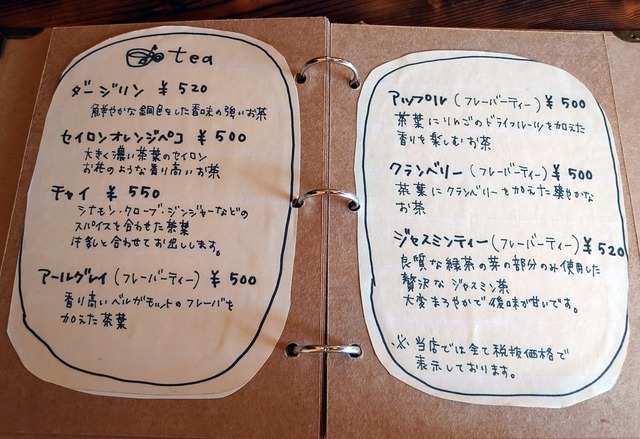 tea
ダージリン ¥520
鮮やかな銅色をした香味の強いお茶
セイロンオレンジペコ ¥500
大きく濃い茶葉のセイロン
お花のような香り高いお茶
チャイ ¥550
シナモン・クローブ・ジンジャーなどの
スパイスを合わせた茶葉
牛乳と合わせてお出しします。
アールグレイ(フレーバーティー) ¥500
香り高いベルガモットのフレーバを
加えた茶葉
アップル(フレーバーティー) ¥500
茶葉にりんごのドライフルーツを加えた
香りを楽しむお茶
クランベリー(フレーバーティー) ¥500
茶葉にクランベリーを加えた爽やかな
お茶
ジャスミンティー(フレーバーティー) ¥520
良質な緑茶の芽の部分のみ使用した
贅沢なジャスミン茶
大変まろやかで後味が甘いです。
※当店では全て税抜価格で
表示しております。